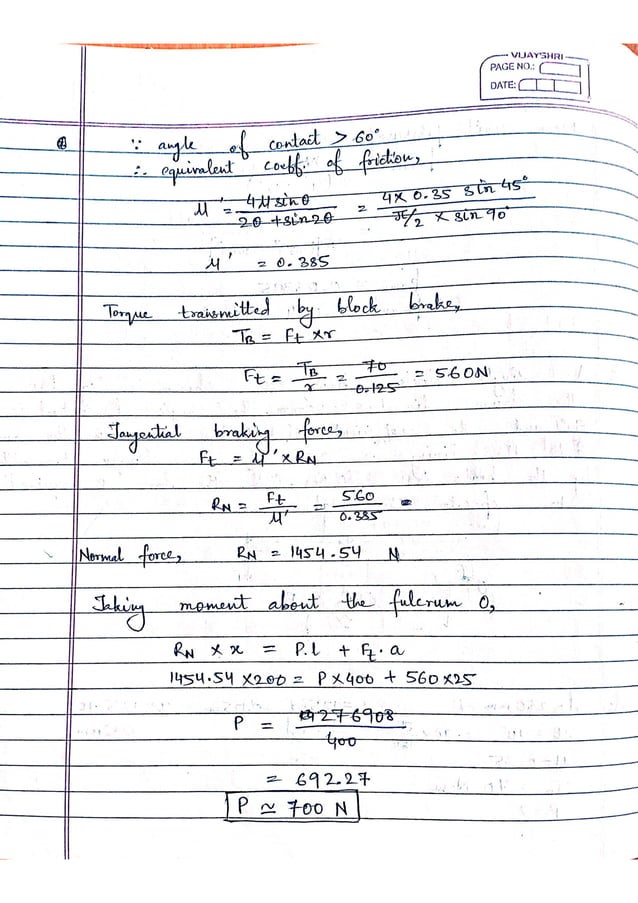 VIJAYSHRI
PAGE NO.:
DATE:
∵ angle of contact > 60°
∴ equivalent coeff. of friction,
μ' = 4μsinθ / 2θ + sin2θ = 4 × 0.35 sin 45° / π/2 × sin 90°
μ' = 0.385
Torque transmitted by block brake,
TB = Ft × r
Ft = TB / r = 70 / 0.125 = 560N
Tangential braking force,
Ft = μ' × RN
RN = Ft / μ' = 560 / 0.385 =
Normal force, RN = 1454.54 N
Taking moment about the fulcrum O,
RN × x = P.l + Ft . a
1454.54 × 200 = P × 400 + 560 × 25
P = 276908 / 400
= 692.27
P ≃ 700 N